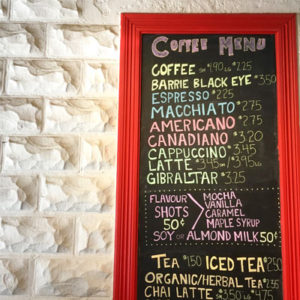 COFFEE MENU
COFFEE SM $1.90 LG $2.25
BARRIE BLACK EYE $3.50
ESPRESSO $2.25
MACCHIATO $2.75
AMERICANO $2.75
CANADIANO $3.20
CAPPUCCINO $3.45
LATTE $3.45 SM/$3.95 LG
GIBRALTAR $3.25
FLAVOUR SHOTS 50¢
MOCHA
VANILLA
CARAMEL
MAPLE SYRUP
SOY OR ALMOND MILK 50¢
TEA $1.50 ICED TEA $2.50
ORGANIC/HERBAL TEA
CHAI LATTE SM $3.50 $4.75